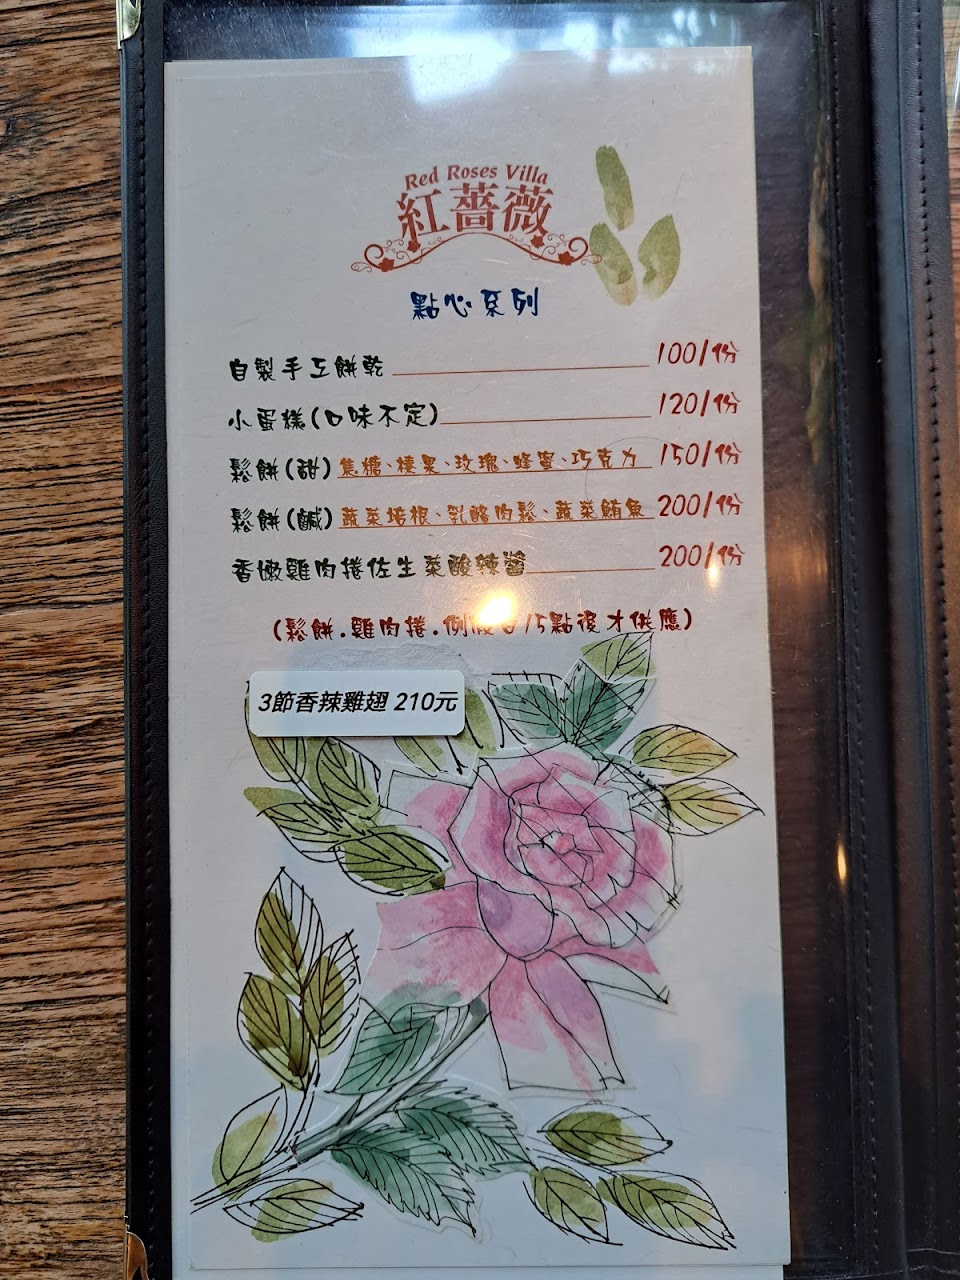 Red Roses Villa
紅薔薇
點心系列
自製手工餅乾 100/份
小蛋糕(口味不定) 120/份
鬆餅(甜)焦糖、榛果、玫瑰、蜂蜜、巧克力 150/份
鬆餅(鹹)蔬菜培根、乳酪肉鬆、蔬菜鮪魚 200/份
香嫩雞肉捲佐生菜酸辣醬 200/份
(鬆餅.雞肉捲.例假日15點後才供應)
3節香辣雞翅 210元